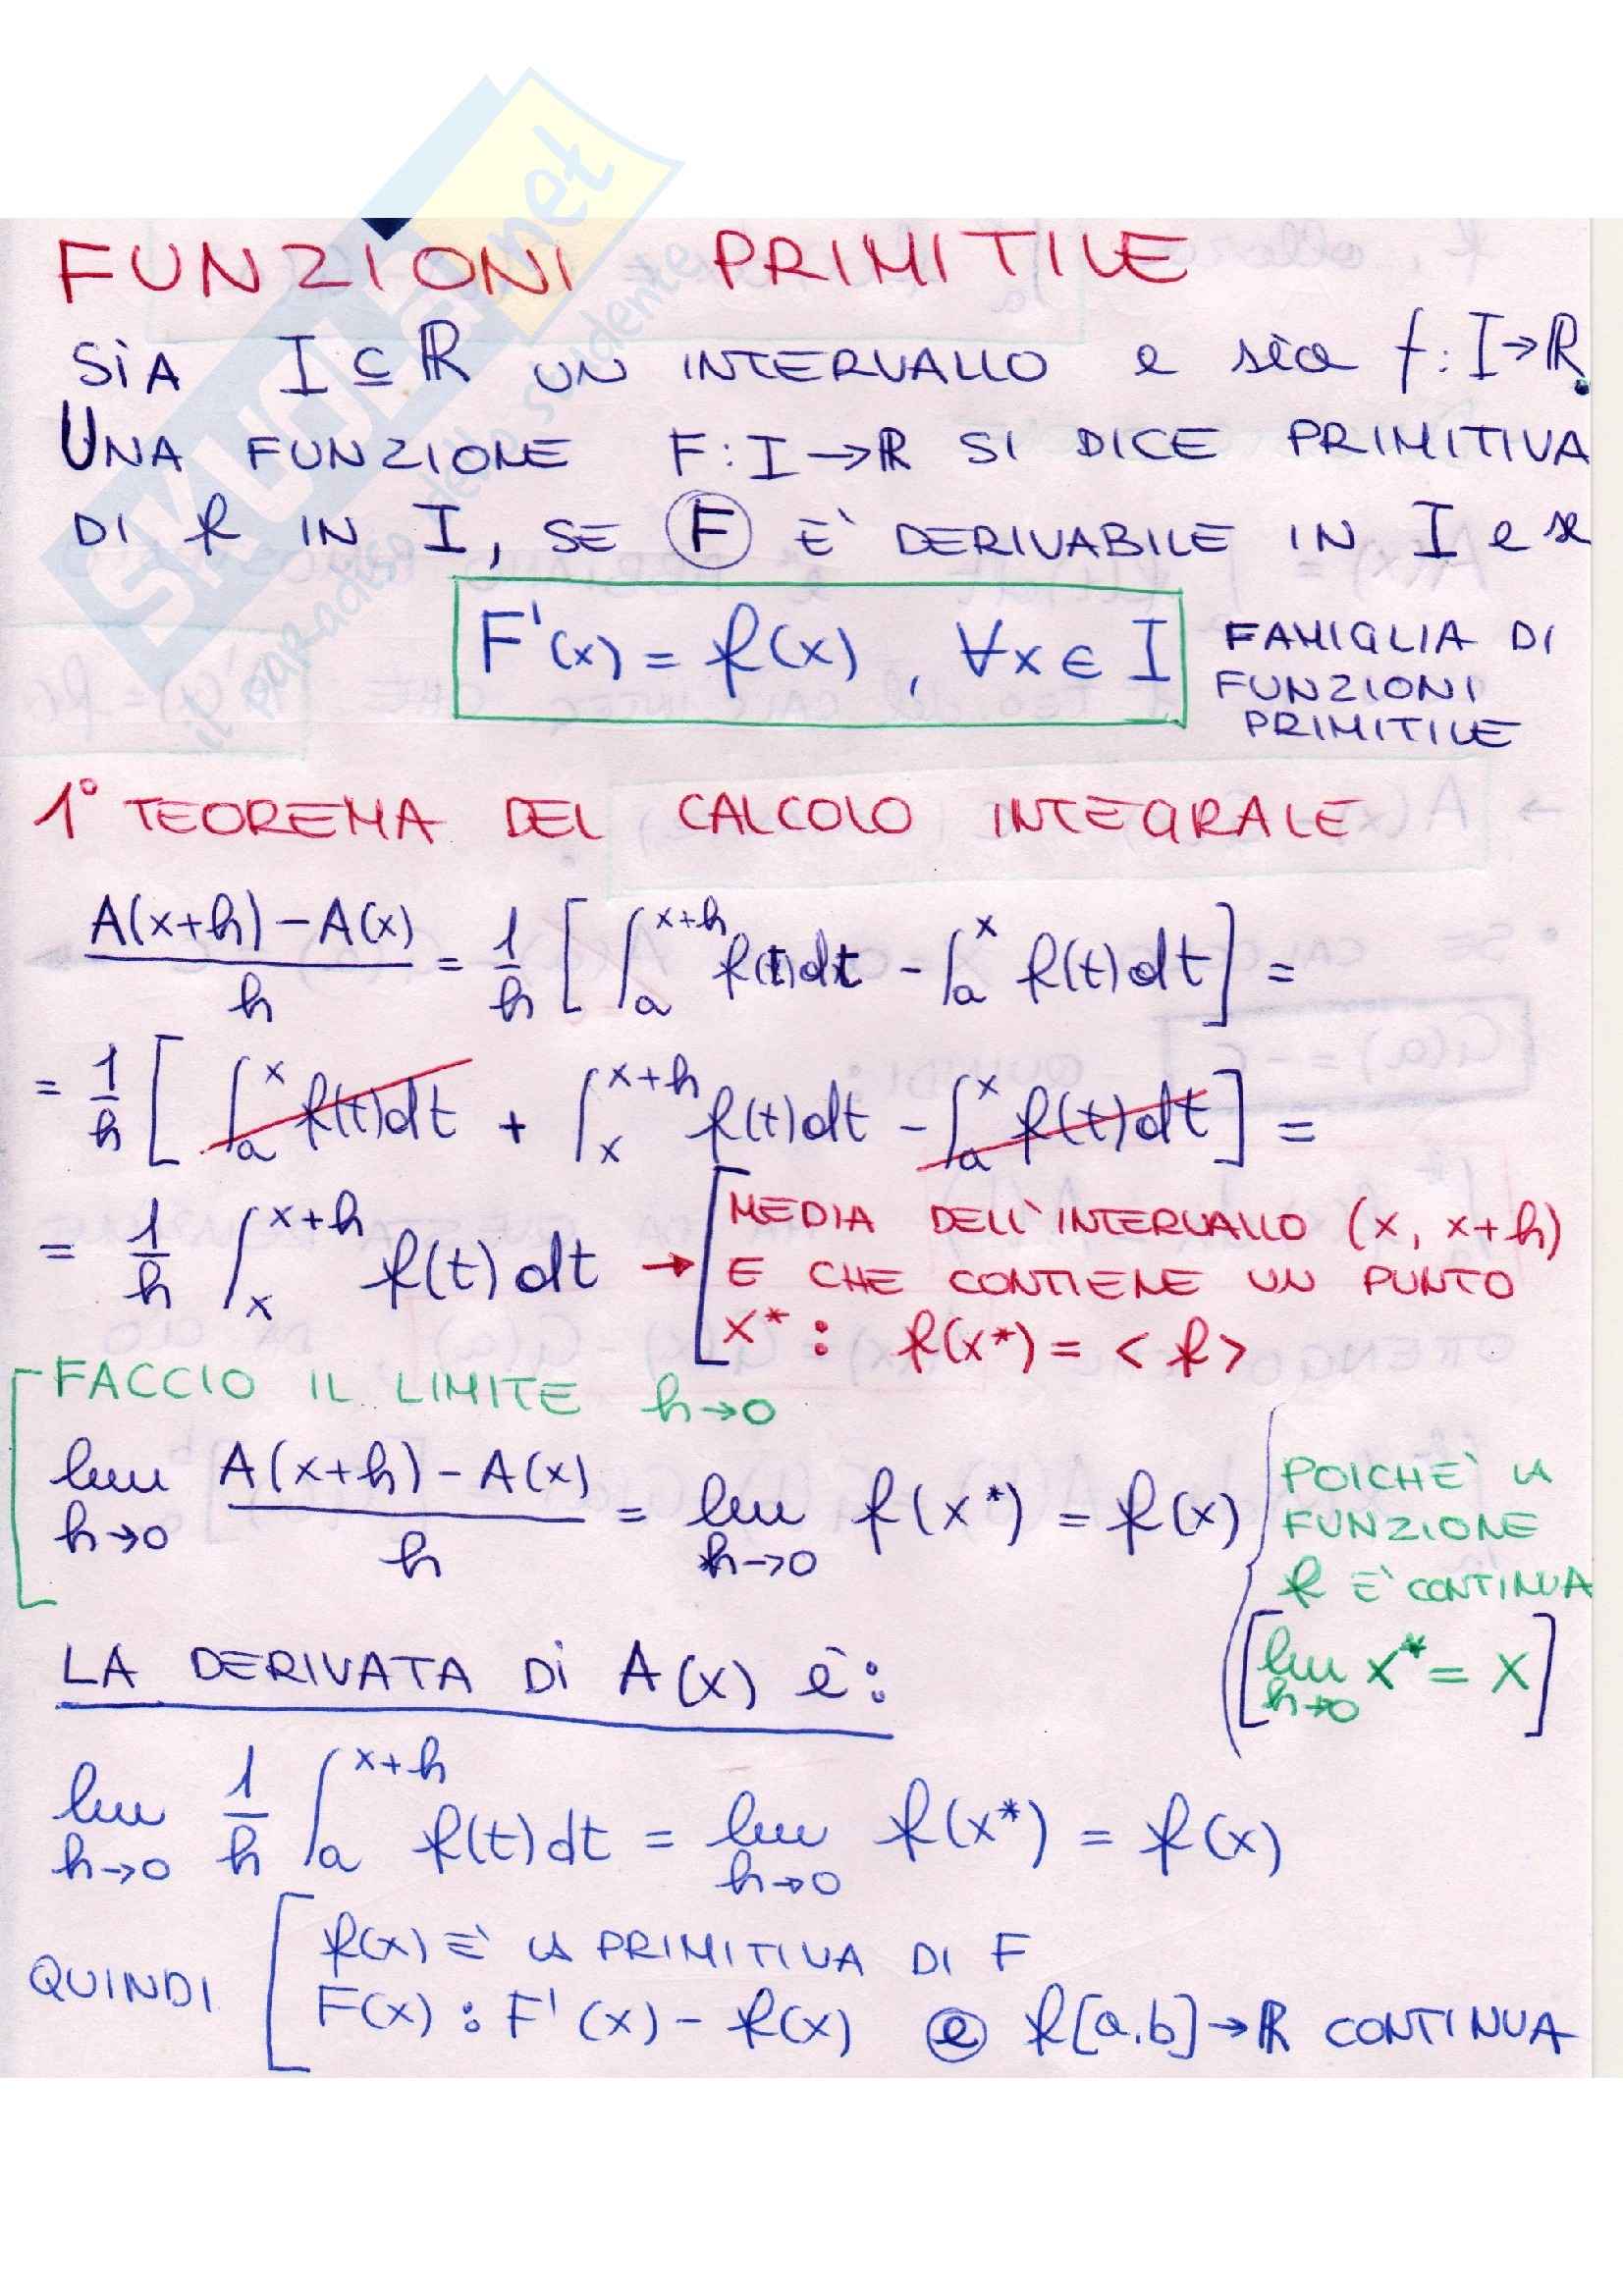 FUNZIONI PRIMITIVE
SIA I ⊆ ℝ UN INTERVALLO e sia f: I→ℝ.
UNA FUNZIONE F: I→ℝ SI DICE PRIMITIVA
DI f IN I, SE F E' DERIVABILE IN I e se
F'(x) = f(x), ∀x ∈ I
FAMIGLIA DI
FUNZIONI
PRIMITIVE
1° TEOREMA DEL CALCOLO INTEGRALE
A(x+h) - A(x) / h = 1/h [ ∫_a^{x+h} f(t)dt - ∫_a^x f(t)dt ] =
= 1/h [ ∫_a^x f(t)dt + ∫_x^{x+h} f(t)dt - ∫_a^x f(t)dt ] =
= 1/h ∫_x^{x+h} f(t) dt →
MEDIA DELL'INTERVALLO (x, x+h)
E CHE CONTIENE UN PUNTO
x* : f(x*) = < f >
FACCIO IL LIMITE h→0
lim h→0 A(x+h) - A(x) / h = lim h→0 f(x*) = f(x)
POICHE' LA
FUNZIONE
f E' CONTINUA
[lim h→0 x* = x]
LA DERIVATA DI A(x) è:
lim h→0 1/h ∫_a^{x+h} f(t)dt = lim h→0 f(x*) = f(x)
QUINDI
f(x) E' LA PRIMITIVA DI F
F(x) : F'(x) - f(x) e f[a.b]→ℝ CONTINUA
SKUOLA.net
il paradiso dello studente